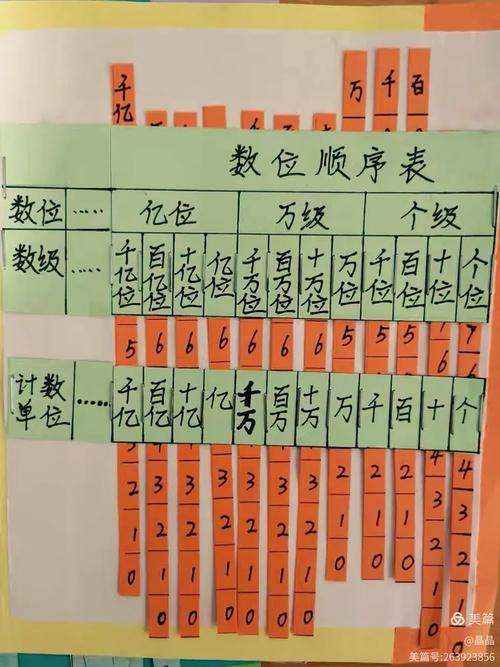 千亿 万 千 百
数位顺序表
数位 …… 亿位 万级 个级
数级 …… 千亿位 百亿位 十亿位 亿位 千万位 百万位 十万位 万位 千位 百位 十位 个位
5 6 6 6 6 6 6 5 5 5 7
计数单位 …… 千亿 百亿 十亿 亿 千万 百万 十万 万 千 百 十 个
4 4
2 3 3 3 3 3 3 2 2 2 3 3
1 2 2 2 2 2 2 1 1 1 2 2
0 1 1 1 1 1 1 0 0 0 1 1
0 0 0 0 0 0 0 0
美篇
@晶晶
美篇号:263923856